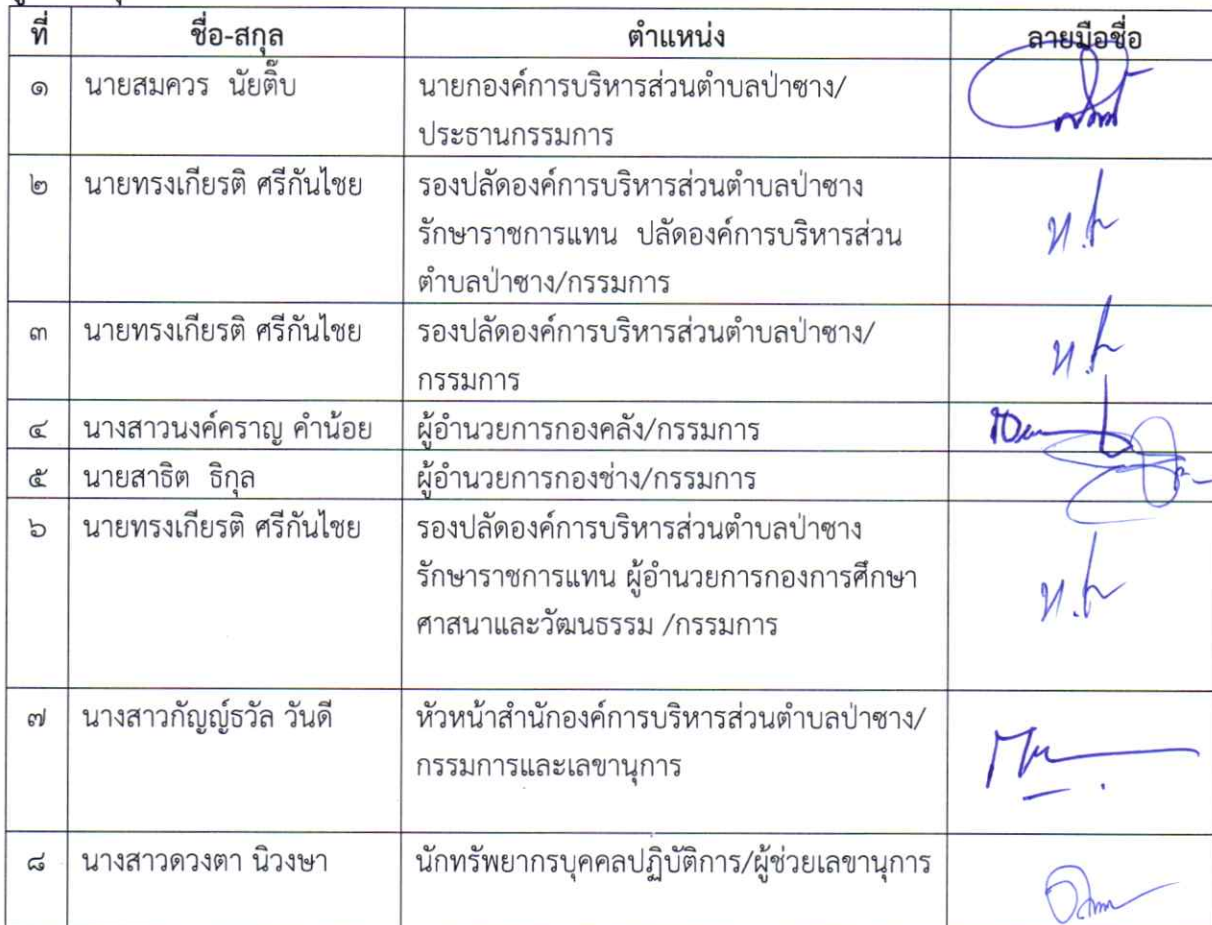 ที่ ชื่อ-สกุล ตำแหน่ง ลายมือชื่อ
๑ นายสมควร นัยติ๊บ นายกองค์การบริหารส่วนตำบลป่าซาง/
ประธานกรรมการ
๒ นายทรงเกียรติ ศรีกันไชย รองปลัดองค์การบริหารส่วนตำบลป่าซาง
รักษาราชการแทน ปลัดองค์การบริหารส่วน
ตำบลป่าซาง/กรรมการ
๓ นายทรงเกียรติ ศรีกันไชย รองปลัดองค์การบริหารส่วนตำบลป่าซาง/
กรรมการ
๔ นางสาวนงค์คราญ คำน้อย ผู้อำนวยการกองคลัง/กรรมการ
๕ นายสาธิต ธิกุล ผู้อำนวยการกองช่าง/กรรมการ
๖ นายทรงเกียรติ ศรีกันไชย รองปลัดองค์การบริหารส่วนตำบลป่าซาง
รักษาราชการแทน ผู้อำนวยการกองการศึกษา
ศาสนาและวัฒนธรรม /กรรมการ
๗ นางสาวกัญญ์ธวัล วันดี หัวหน้าสำนักองค์การบริหารส่วนตำบลป่าซาง/
กรรมการและเลขานุการ
๘ นางสาวดวงตา นิวงษา นักทรัพยากรบุคคลปฏิบัติการ/ผู้ช่วยเลขานุการ